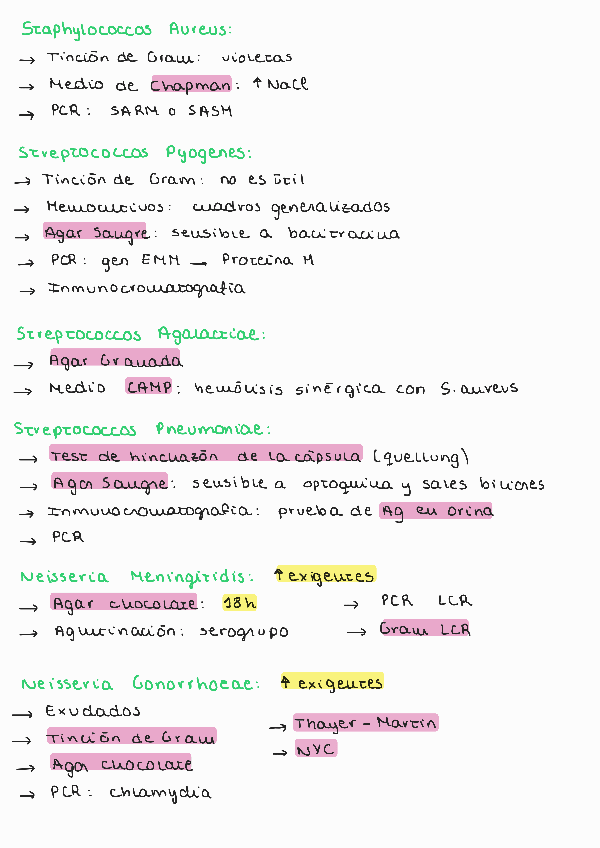 Staphylococcos Aureus:
→ Tinción de Gram: violetas
→ Medio de Chapman: ↑ NaCl
→ PCR: SARM o SASM
Streptococcos Pyogenes:
→ Tinción de Gram: no es útil
→ Hemocultivos: cuadros generalizados
→ Agar Sangre: sensible a bacitracina
→ PCR: gen EMM → Proteína M
→ Inmunocromatografía
Streptococcos Agalactiae:
→ Agar Granada
→ Medio CAMP: hemólisis sinérgica con S. aureus
Streptococcos Pneumoniae:
→ Test de hinchazón de la cápsula (quellung)
→ Agar Sangre: sensible a optoquina y sales biliares
→ Inmunocromatografía: prueba de Ag en orina
→ PCR
Neisseria Meningitidis: ↑ exigentes
→ Agar chocolate: 18h → PCR LCR
→ Aglutinación: serogrupo → Gram LCR
Neisseria Gonorrhoeae: ↑ exigentes
→ Exudados
→ Thayer - Martin
→ Tinción de Gram
→ NYC
→ Agar chocolate
→ PCR: chlamydia